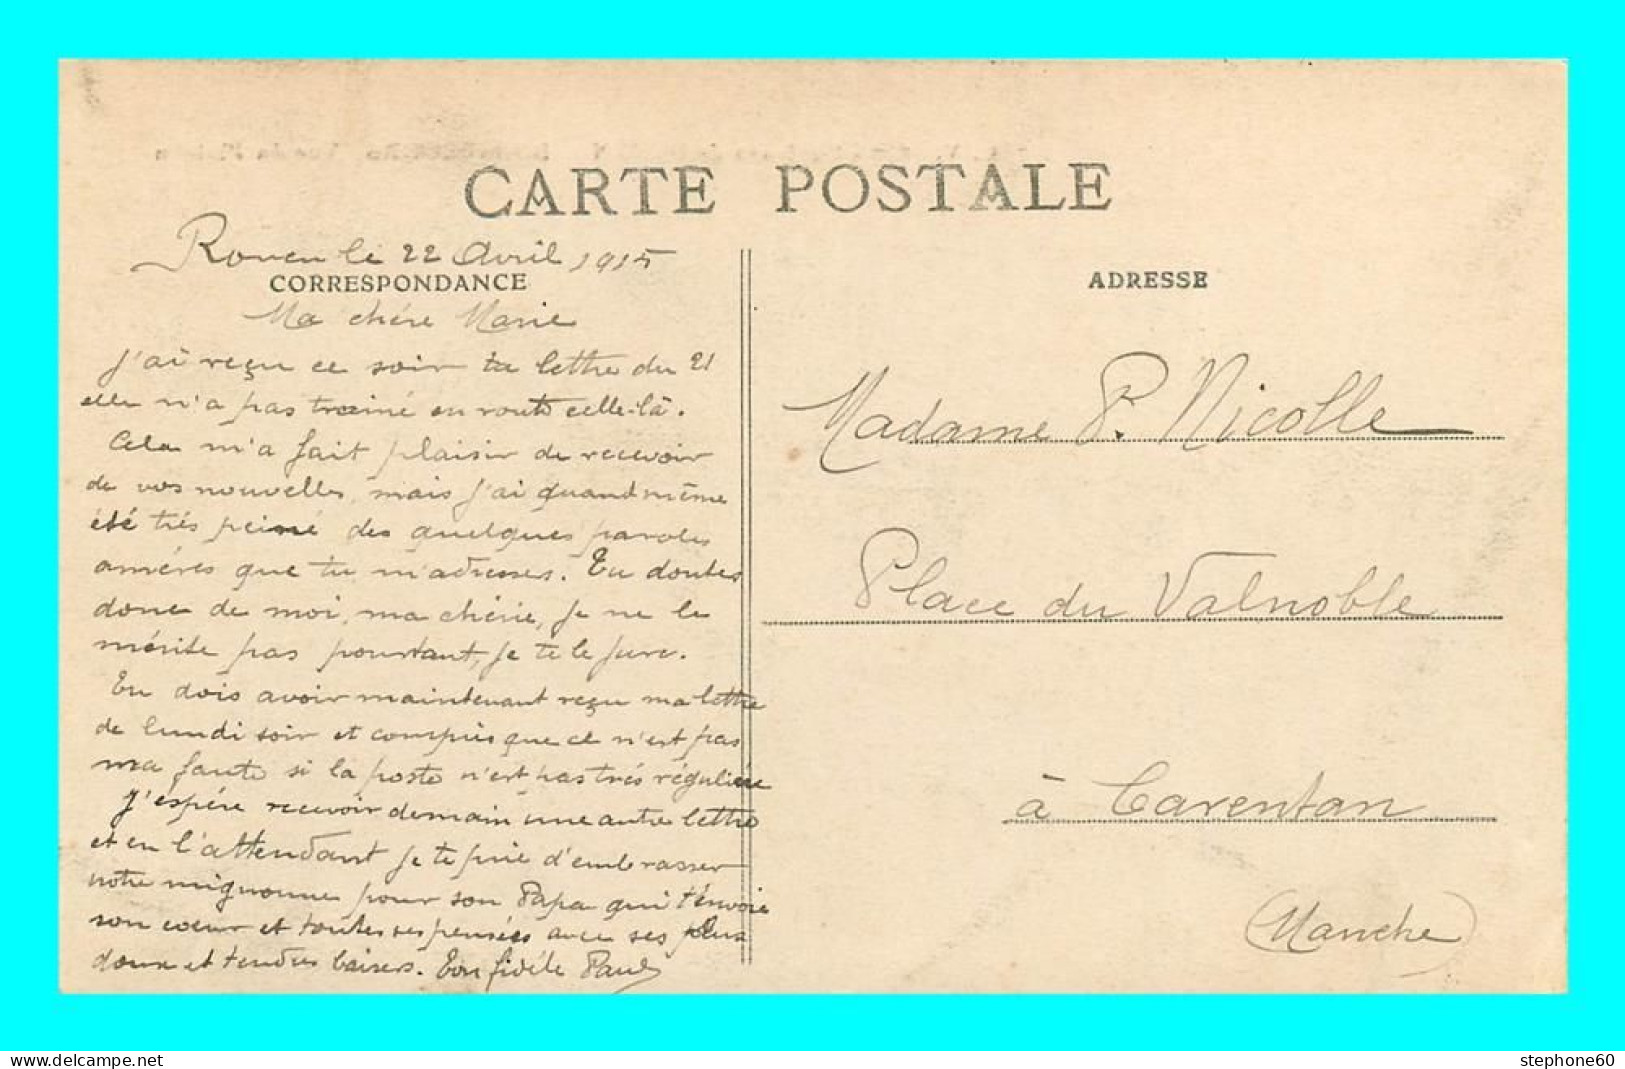 CARTE POSTALE
Rouen le 22 Avril 1915
CORRESPONDANCE
Ma chère Marie
J'ai reçu ce soir ta lettre du 21
elle n'a pas trainé en route celle-là.
Cela m'a fait plaisir de recevoir
de vos nouvelles, mais j'ai quand même
été très peiné des quelques paroles
amères que tu m'adresses. Tu doutes
donc de moi, ma chérie, je ne le
mérite pas pourtant, je te le jure.
Tu dois avoir maintenant reçu ma lettre
de lundi soir et compris que ce n'est pas
ma faute si la poste n'est pas très régulière
J'espère recevoir demain une autre lettre
et en l'attendant je te prie d'embrasser
notre mignonne pour son Papa qui t'envoie
son coeur et toutes ses pensées avec ses plus
doux et tendres baisers. Ton fidèle Paul
ADRESSE
Madame P. Nicolle
Place du Valnoble
à Carentan
(Manche)
stephone60